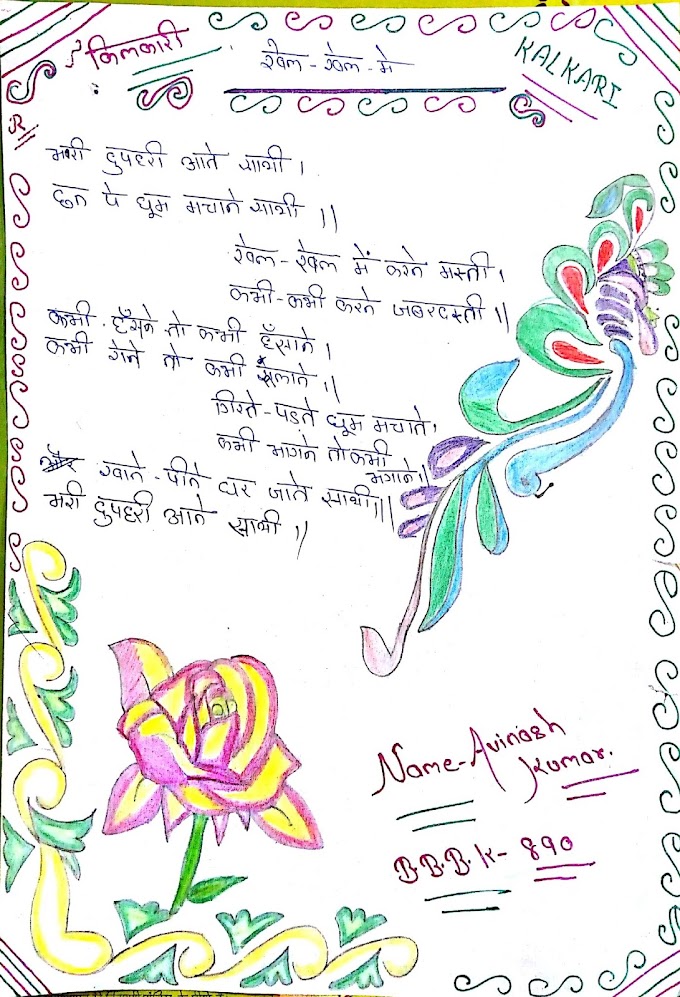 किलकारी
खेल-खेल-मे
KALKARI
भरी दुपहरी आते साथी ।
छत पे धूम मचाते साथी ।।
खेल-खेल में करते मस्ती ।
कभी-कभी करते जबरदस्ती ।।
कभी-हँसते तो कभी हँसाते ।
कभी रोते तो कभी रूलाते ।।
गिरते-पडते धूम मचाते ।
कभी भागते तो कभी
भगाते ।।
खाते-पीते घर जाते साथी ।।
भरी दुपहरी आते साथी ।।
Name-Avinash
Kumar.
B.B.B.K-890